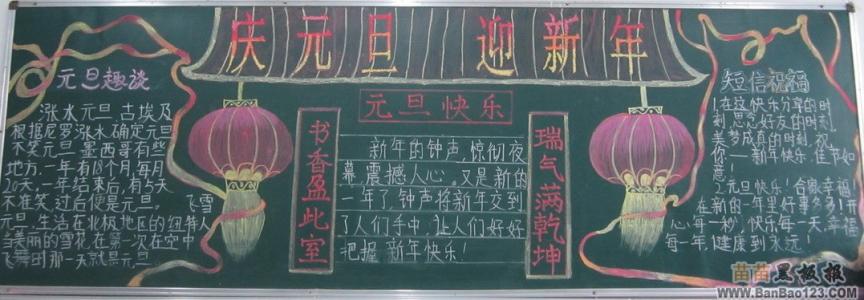 庆元旦 迎新年
元旦趣谈
涨水元旦,古埃及
根据尼罗涨水确定元旦
不笑元旦 墨西哥有些
地方,一年有18个月,每月
20天,一年结束后,有5天
不准笑,过后便是元旦。 飞雪
元旦,生活在北极地区的纽特人
当美丽的雪花,在第一次在空中
飞舞时那一天就是元旦
元旦快乐
书香盈此室
新年的钟声,惊彻夜
幕,震撼人心。又是新的
一年了,钟声将新年交到
了人们手中,让人们好好
把握 新年快乐!
瑞气满乾坤
短信祝福
1.在这快乐分享的时
刻,思念好友的时刻,
美梦成真的时刻,祝
你——新年快乐,佳节如
意!
2.元旦快乐!合家幸福
在新的一年里好事多多!开
心每一秒,快乐每一天,幸福
每一年,健康到永远!
苗苗黑板报
www.BanBao123.com